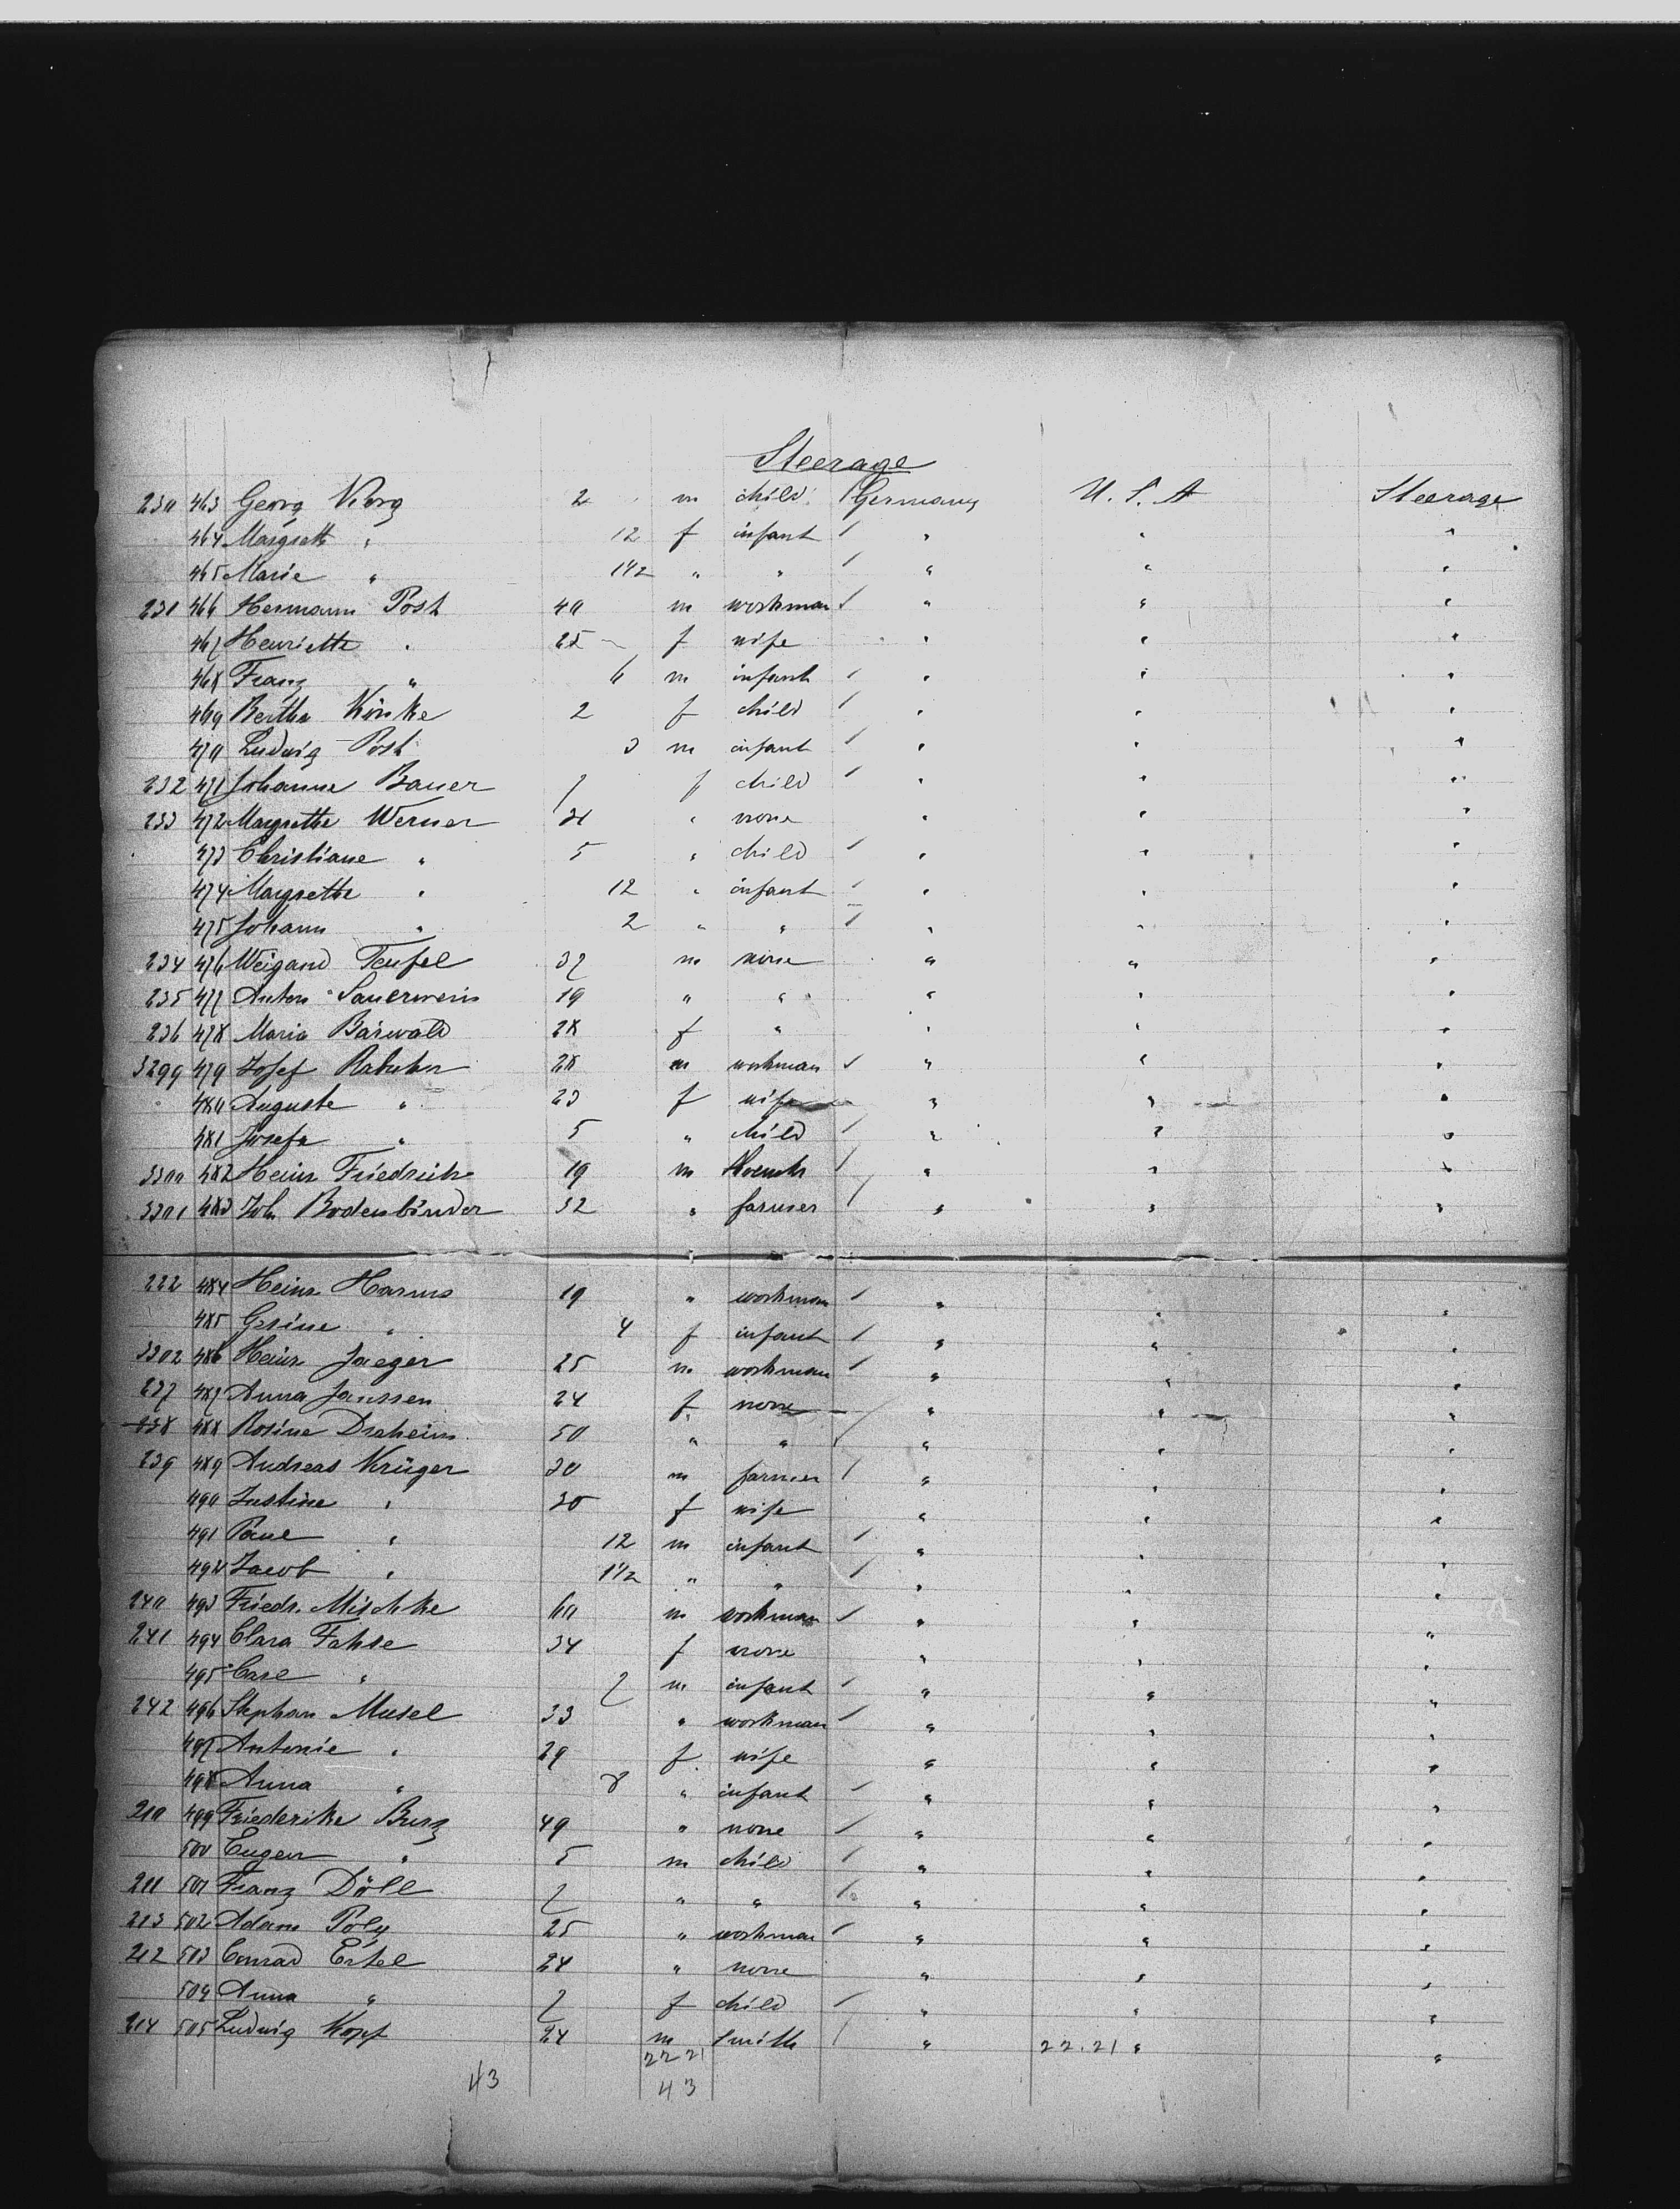 Steerage
230 463 Georg Korg 2 m child Germany U.S.A Steerage
464 Margreth " 12 f infant " " "
465 Marie " 1 1/2 " " " " "
231 466 Hermann Post 40 m workman " " "
467 Henriette " 25 f wife " " "
468 Franz " 6 m infant " " "
469 Bertha Köncke 2 f child " " "
470 Ludwig Post 3 m infant " " "
232 471 Johanne Bauer 7 f child " " "
233 472 Margrethe Werner 31 " none " " "
473 Christiane " 5 " child " " "
474 Margrethe " 12 " infant " " "
475 Johann " 2 " " " " "
234 476 Weigand Teufel 37 m none " " "
235 477 Anton Sauerwein 19 " " " " "
236 478 Maria Bärwald 28 f " " " "
3299 479 Josef 28 m workman " " "
480 Auguste " 23 f wife " " "
481 Josefa " 5 " child " " "
3300 482 Heinr. Friedrich 19 m " " "
3301 483 Joh. Bodenbinder 32 " farmer " " "
222 484 Heinr. Harms 19 " workman " " "
485 Gesine " 4 f infant " " "
3302 486 Heinr. Jaeger 25 m workman " " "
237 487 Anna Janssen 24 f none " " "
238 488 Rosine Draheim 50 " " " " "
239 489 Andreas Krüger 30 m farmer " " "
490 Justine " 30 f wife " " "
491 Paul " 12 m infant " " "
492 Jacob " 1 1/2 " " " " "
240 493 Friedr. Mischke 60 m workman " " "
241 494 Clara Fahse 34 f none " " "
495 Carl " 7 m infant " " "
242 496 Stephan Musel 33 " workman " " "
497 Antonie " 29 f wife " " "
498 Anna " 8 " infant " " "
210 499 Friederike Burz 49 " none " " "
500 Eugen " 5 m child " " "
211 501 Franz Döll 7 " " " " "
213 502 Adam Poly 25 " workman " " "
212 503 Conrad Ertel 24 " none " " "
504 Anna " 7 f child " " "
214 505 Ludwig Kopf 24 m smith " 22.21 " "
22 21
43 43